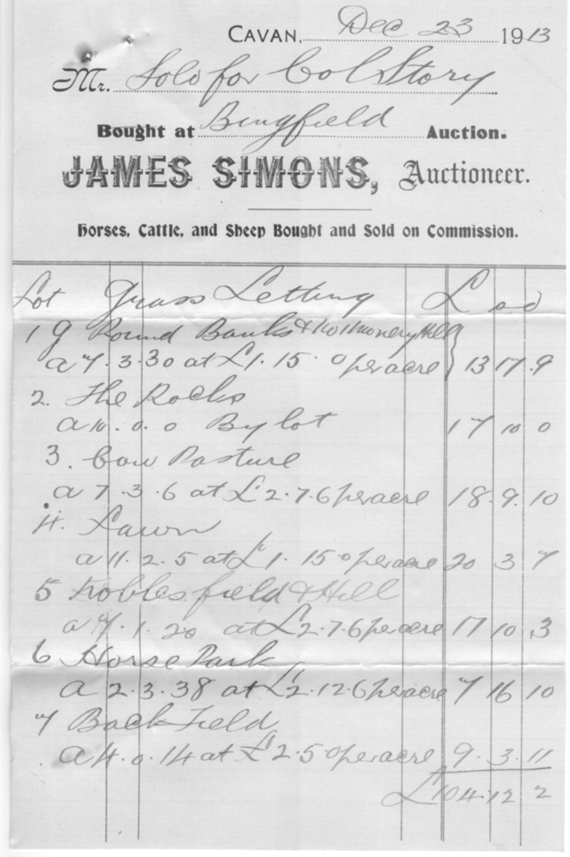 CAVAN, Dec 23 1913
Mr. Solo for Col Story
Bought at Bingfield Auction.
JAMES SIMONS, Auctioneer.
Horses, Cattle, and Sheep Bought and Sold on Commission.
Lot Grass Letting £ s d
1 Round Banks & Hill
a 7. 3. 30 at £1. 15. 0 per acre 13 17. 9
2. The Rocks
a 10. 0. 0 By lot 17 10 0
3. Cow Pasture
a 7. 3. 6 at £2. 7. 6 per acre 18. 9. 10
4. Lawn
a 11. 2. 5 at £1. 15 0 per acre 20 3 7
5 Noblesfield & Hill
a 7. 1. 20 at £2. 7. 6 per acre 17 10. 3
6 Horse Park
a 2. 3. 38 at £2. 12. 6 per acre 7 16 10
7 Back Field
a 4. 0. 14 at £2. 5 0 per acre 9. 3. 11
£104. 12 2